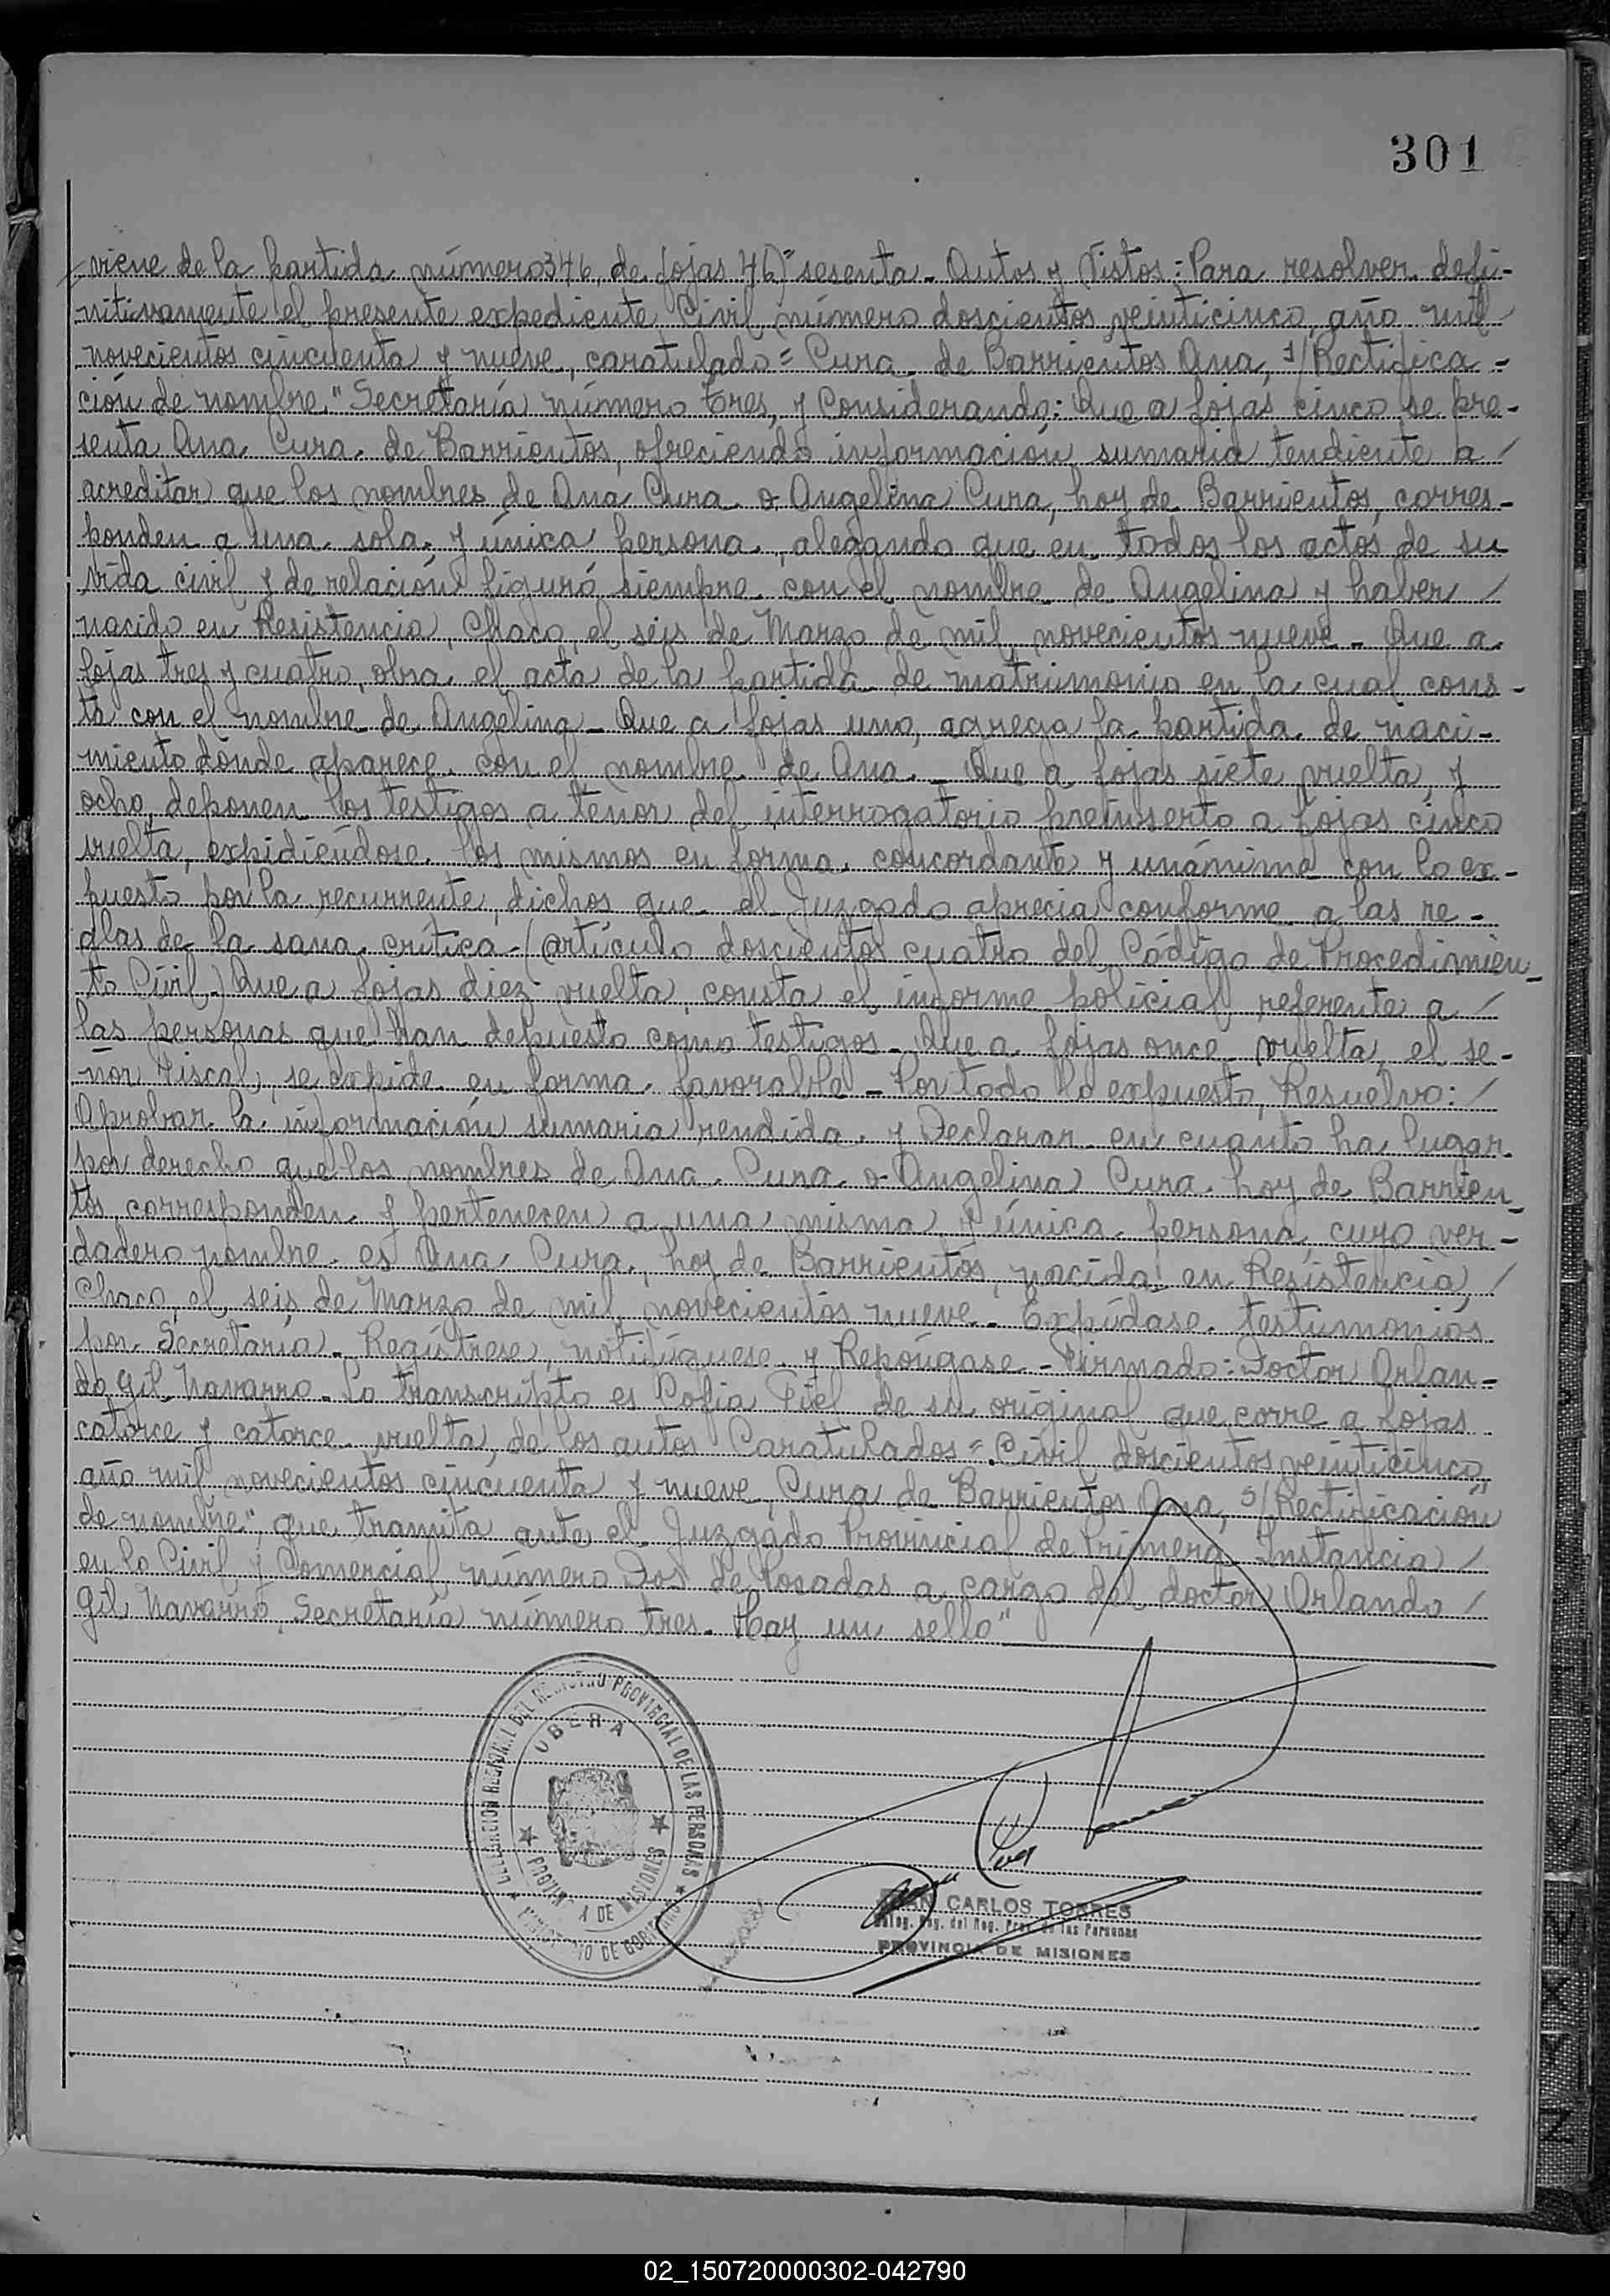 301
viene de la partida número 346, de fojas 46)" sesenta - Autos y Vistos: Para resolver defi-
nitivamente el presente expediente Civil número doscientos veinticinco, año mil
novecientos cincuenta y nueve, caratulado = Cura de Barrientos Ana, s/Rectifica-
ción de nombre." Secretaría número tres, y Considerando: Que a fojas cinco se pre-
senta Ana Cura de Barrientos, ofreciendo información sumaria tendiente a /
acreditar que los nombres de Ana Cura o Angelina Cura, hoy de Barrientos, corres-
ponden a una sola y única persona, alegando que en todos los actos de su
vida civil y de relación figuró siempre con el nombre de Angelina y haber /
nacido en Resistencia, Chaco, el seis de Marzo de mil novecientos nueve - Que a
fojas tres y cuatro, obra el acta de la partida de matrimonio en la cual cons-
ta con el nombre de Angelina - Que a fojas uno, agrega la partida de naci-
miento dónde aparece con el nombre de Ana. - Que a fojas siete vuelta, y
ocho, deponen los testigos a tenor del interrogatorio preinserto a fojas cinco
vuelta, expidiéndose los mismos en forma concordante y unánime con lo ex-
puesto por la recurrente, dichos que el Juzgado aprecia conforme a las re-
glas de la sana crítica - (artículo doscientos cuatro del Código de Procedimien-
to Civil) Que a fojas diez vuelta consta el informe policial referente a /
las personas que han depuesto como testigos - Que a fojas once vuelta, el se-
ñor Fiscal, se expide en forma favorable - Por todo lo expuesto, Resuelvo: /
Aprobar la información sumaria rendida y Declarar en cuanto ha lugar
por derecho que los nombres de Ana Cura o Angelina Cura hoy de Barrien-
tos corresponden y pertenecen a una misma y única persona, cuyo ver-
dadero nombre es Ana Cura, hoy de Barrientos, nacida en Resistencia, /
Chaco, el seis de Marzo de mil novecientos nueve. Expídase testimonios
por Secretaría - Regístrese, notifíquese y Repóngase - Firmado: Doctor Orlan-
do Gil Navarro - Lo transcripto es Copia Fiel de su original que corre a fojas
catorce y catorce vuelta, de los autos Caratulados = Civil doscientos veinticinco
año mil novecientos cincuenta y nueve, Cura de Barrientos Ana, s/Rectificación
de nombre", que tramita ante el Juzgado Provincial de Primera Instancia /
en lo Civil y Comercial número Dos de Posadas a cargo del doctor Orlando /
Gil Navarro, Secretaría número tres. Hay un sello"
DELEGACION REGIONAL DEL REGISTRO PROVINCIAL DE LAS PERSONAS
MINISTERIO DE GOBIERNO
OBERA
PROVINCIA DE MISIONES
JUAN CARLOS TORRES
Deleg. Reg. del Reg. Prov. de las Personas
PROVINCIA DE MISIONES
02_150720000302-042790